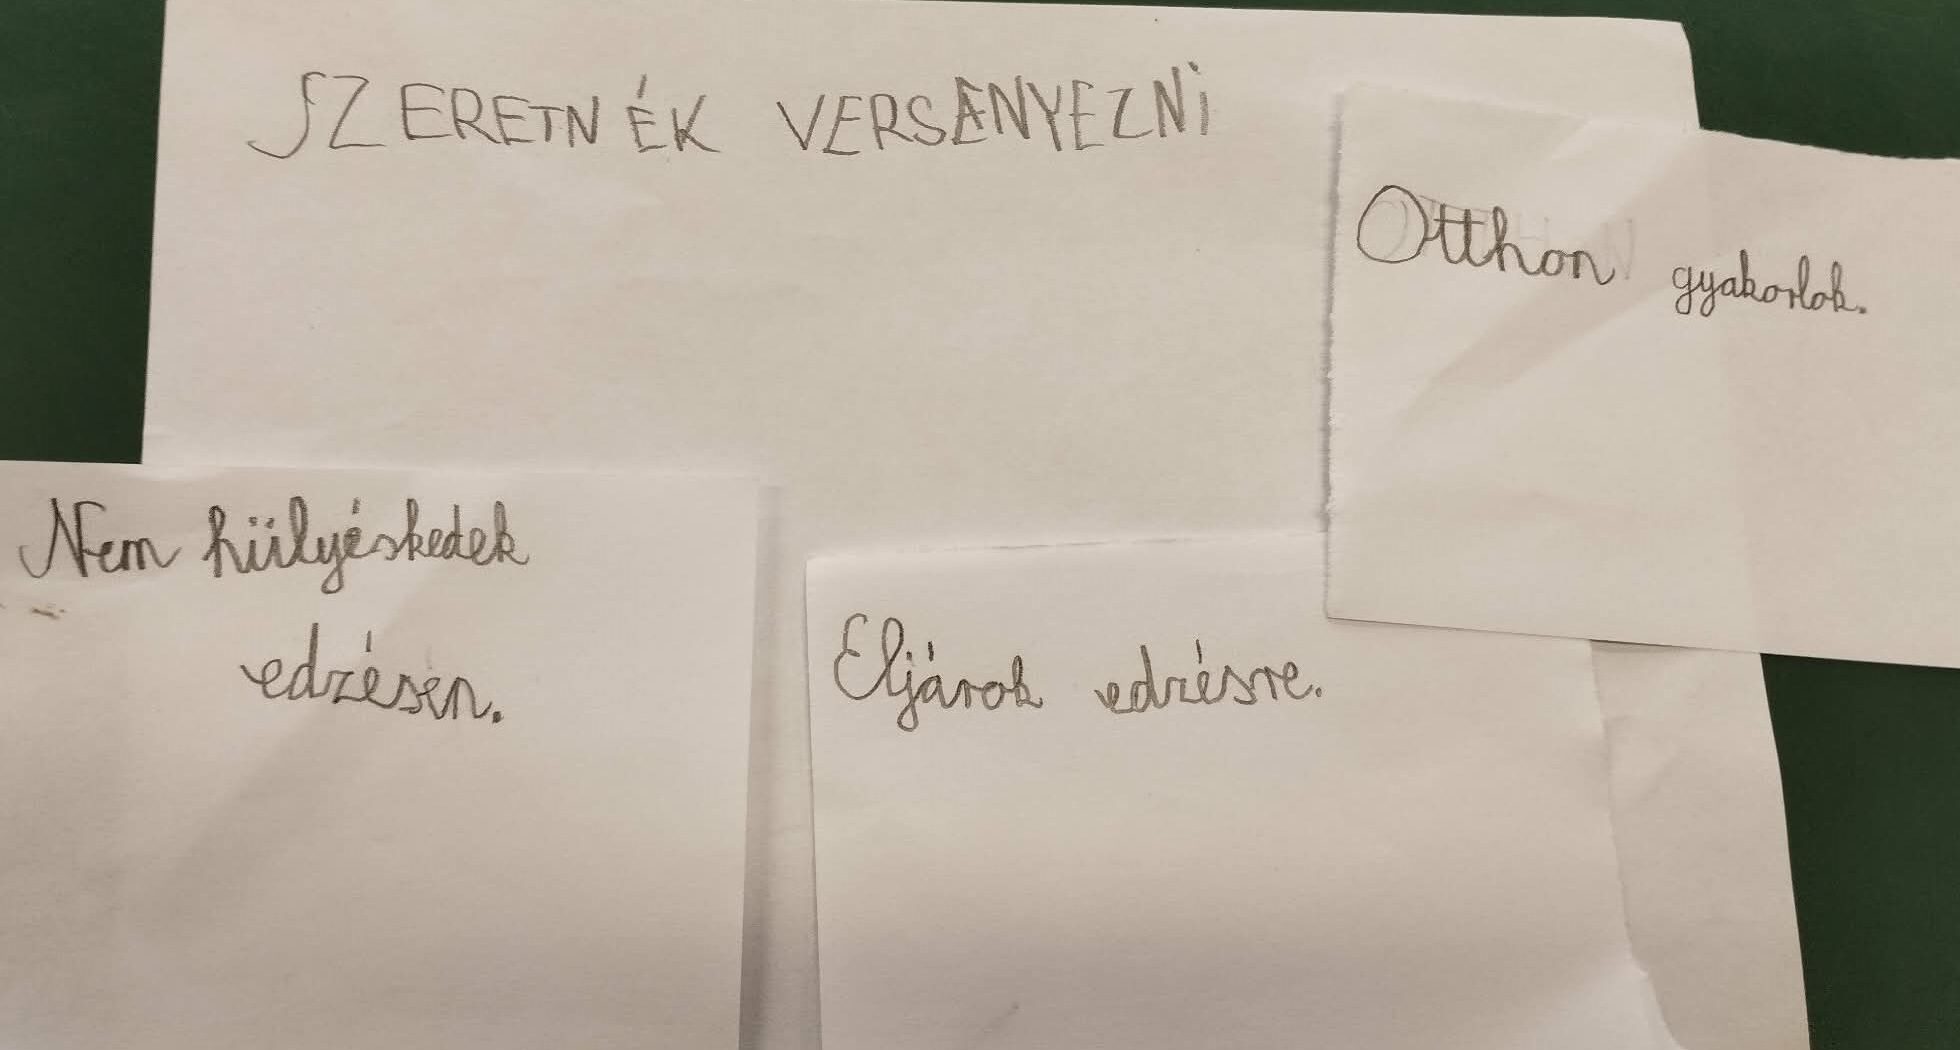 SZERETNÉK VERSENYEZNi
Otthon gyakorlok.
Nem hülyéskedek
edzésen.
Eljárok edzésre.